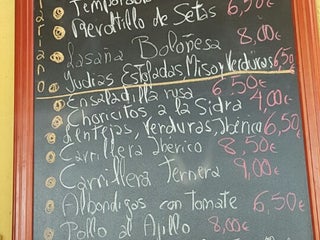 Revoltillo de Setas 6,50€
Lasaña Boloñesa 8,00€
Judias Estofadas Miso y Verduras 6,50
Ensaladilla rusa 6,50€
Choricitos a la Sidra 4,00€
Lentejas, Verduras, Ibérico 6,50
Carrillera Iberico 8,50€
Carrillera Ternera 9,00€
Albondigas con tomate 6,50€
Pollo al Ajillo 8,00€